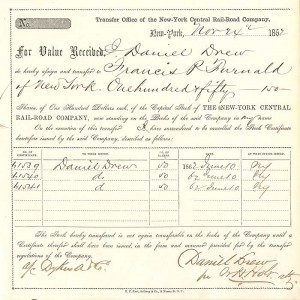 Transfer Office of the New-York Central Rail-Road Company,
New-York, Nov 24th 186
For Value Received, I Daniel Drew
do hereby assign and transfer to Francis P. Furnald
of New York One hundred & fifty 150
Shares, of One Hundred Dollars each, of the Capital Stock of THE NEW-YORK CENTRAL
RAIL-ROAD COMPANY, now standing on the Books of the said Company in my name
On the execution of this transfer I have surrendered to be cancelled the Stock Certificate
heretofore issued by the said Company, described as follows:
41539 Daniel Drew 50 186 June 10
41540 do 50 62 June 10
41541 do 50 62 June 10
The Stock hereby transferred is not again transferable on the books of the Company until a
Certificate therefor shall have been issued, in the form and manner provided for by the transfer
regulations of the Company.
Daniel Drew